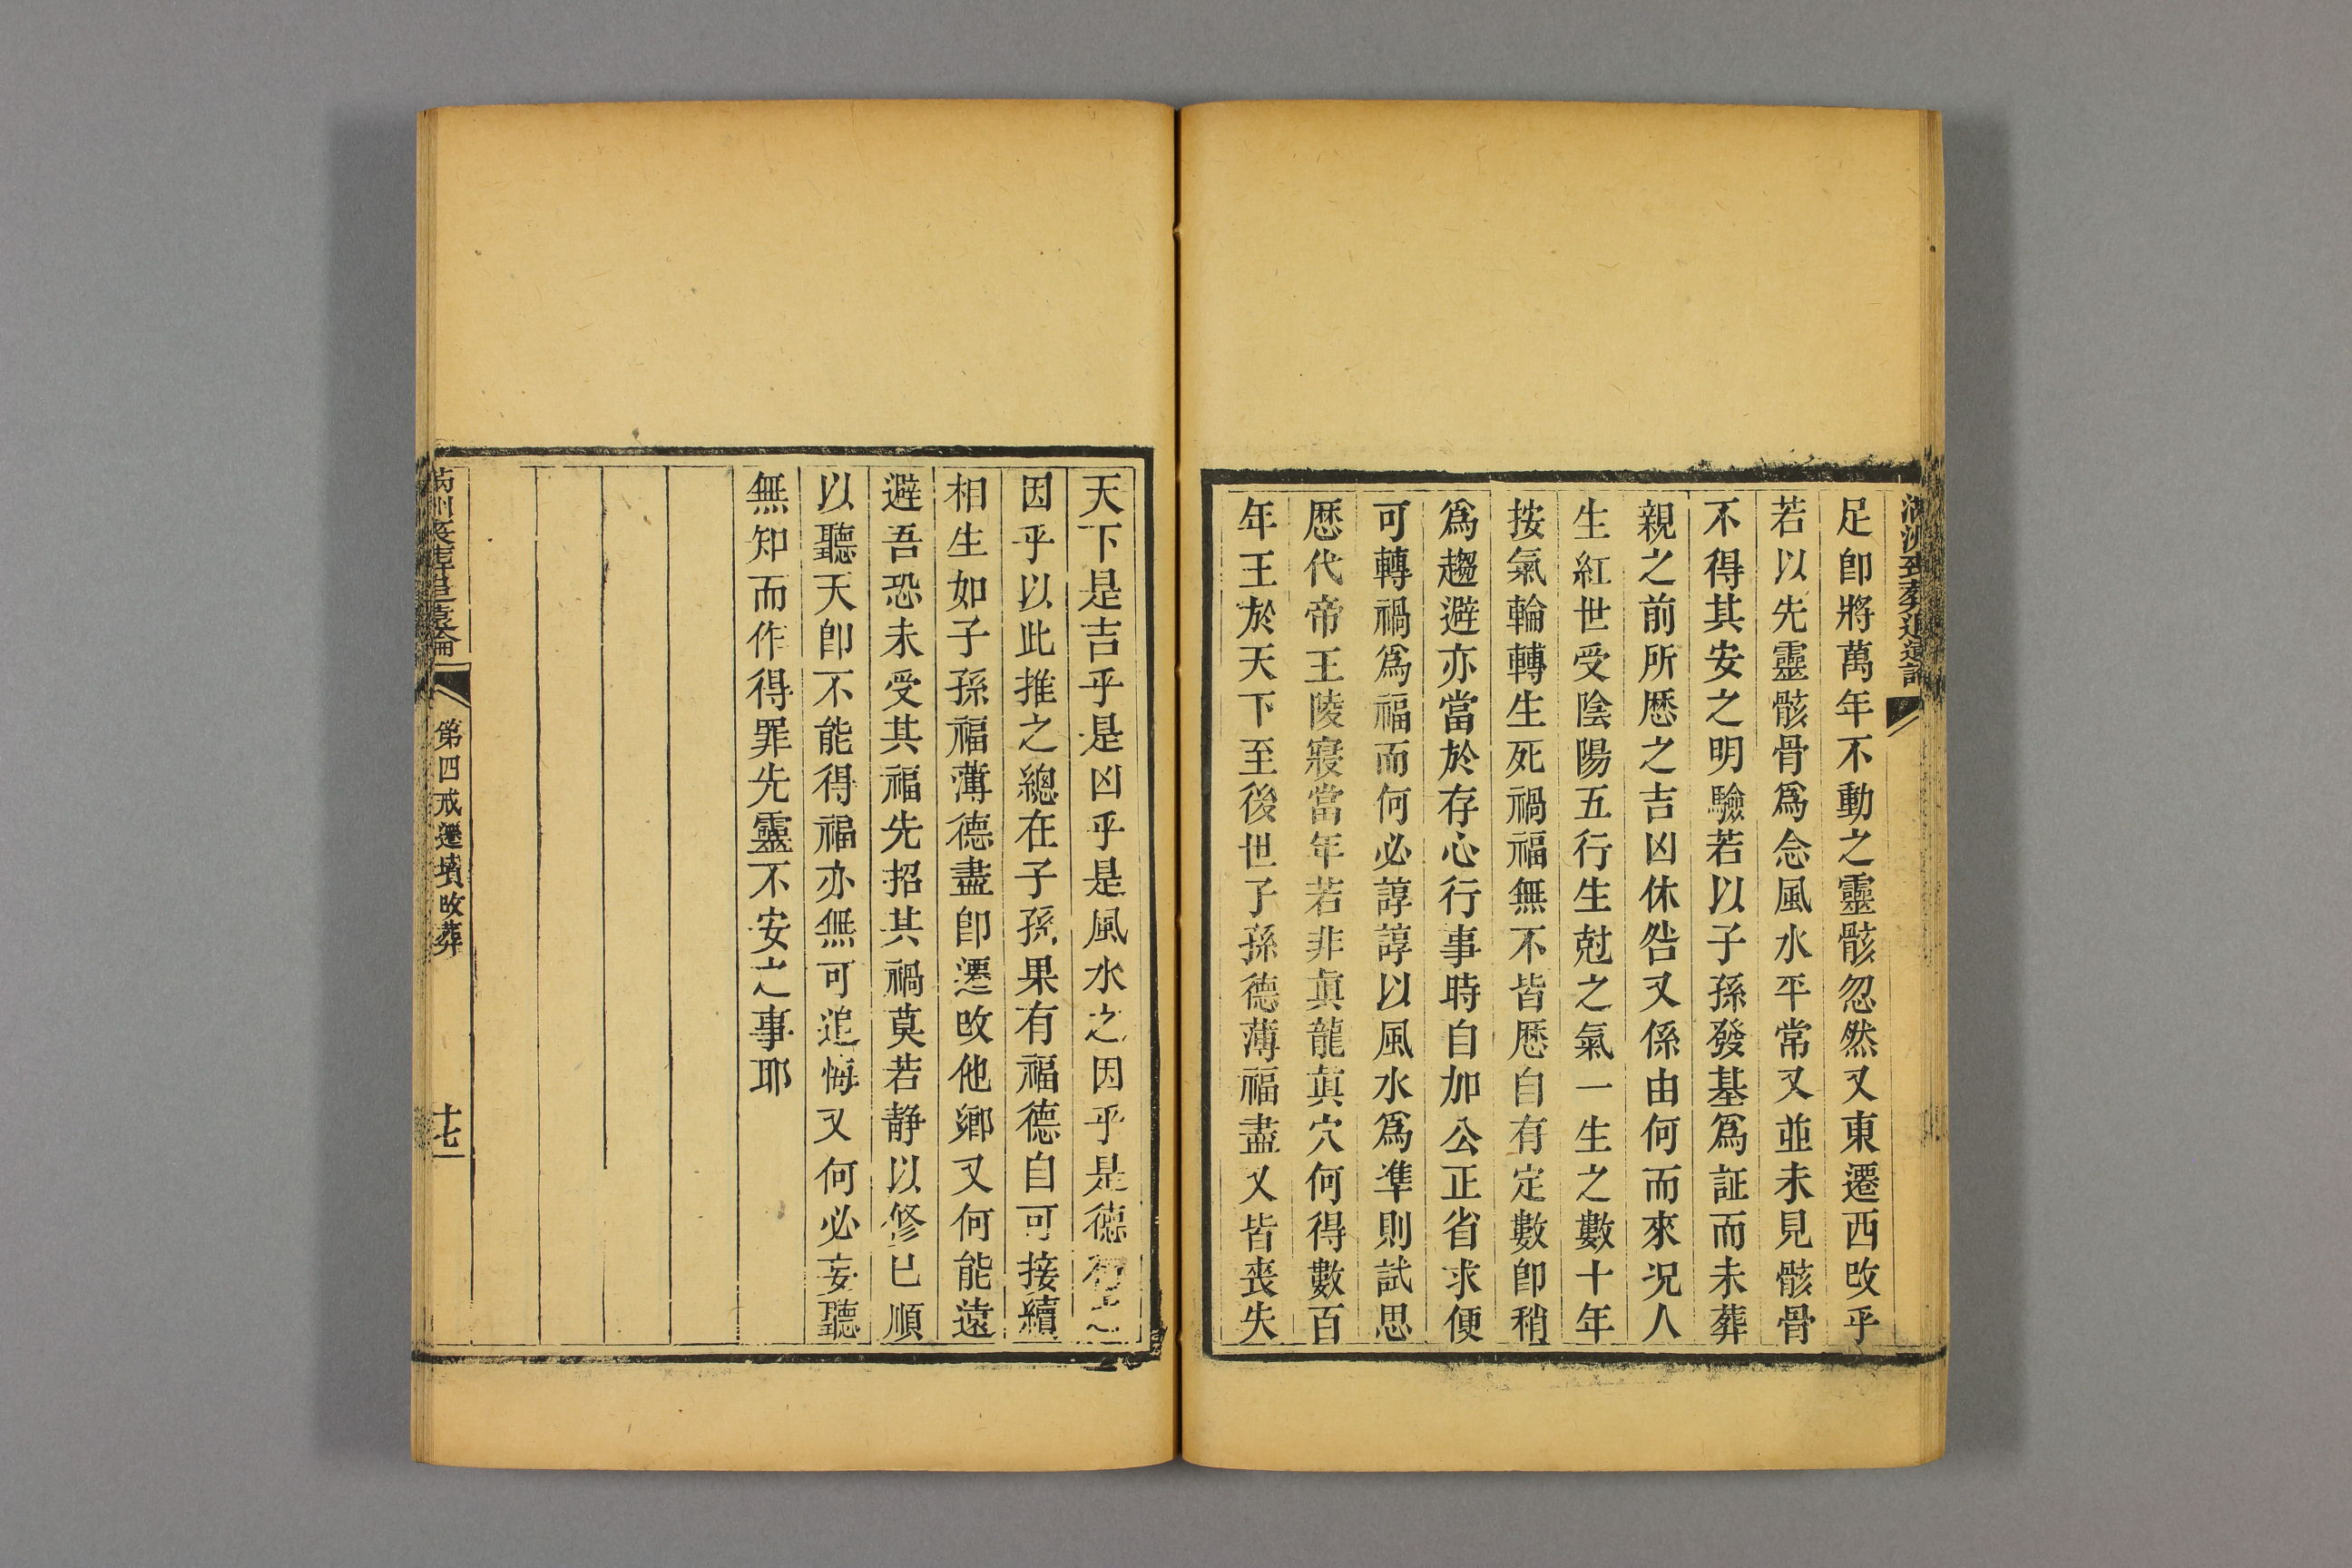 足卽將萬年不動之靈骸忽然又東遷西改乎
若以先靈骸骨爲念風水平常又並未見骸骨
不得其安之明驗若以子孫發基爲証而未葬
親之前所歷之吉凶休咎又係由何而來况人
生紅世受陰陽五行生尅之氣一生之數十年
按氣輪轉生死禍福無不皆歷自有定數卽稍
爲趨避亦當於存心行事時自加公正省求便
可轉禍爲福而何必諄諄以風水爲凖則試思
歷代帝王陵寢當年若非真龍真穴何得數百
年王於天下至後世子孫德薄福盡又皆喪失
天下是吉乎是凶乎是風水之因乎是德
因乎以此推之總在子孫果有福德自可接續
相生如子孫福薄德盡卽遷改他鄉又何能遠
避吾恐未受其福先招其禍莫若静以修已順
以聽天卽不能得福亦無可追悔又何必妄聽
無知而作得罪先靈不安之事耶
第四戒遷墳改葬
十七